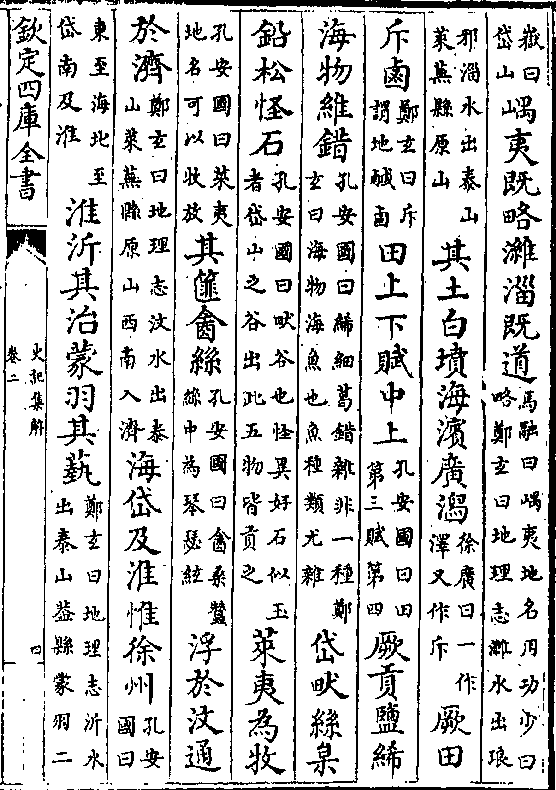 嶽曰岱山嵎夷既略濰淄既道馬融曰嵎夷地名用功少曰略鄭玄曰地理志濰水出琅
邪淄水出泰山萊蕪縣原山其土白墳海濱廣潟徐廣曰一作澤又作斥厥田
斥鹵鄭玄曰斥謂地鹹鹵田上下賦中上孔安國曰田第三賦第四厥貢鹽絺
海物維錯孔安國曰絺細葛錯雜非一種鄭玄曰海物海魚也魚種類尤雜岱畎絲枲
鉛松怪石孔安國曰畎谷也怪異好石似玉者岱山之谷出此五物皆貢之萊夷為牧
孔安國曰萊夷地名可以牧放其篚酓絲孔安國曰酓桑蠶絲中為琴瑟絃浮於汶通
於濟鄭玄曰地理志汶水出泰山萊蕪縣原山西南入濟海岱及淮惟徐州孔安國曰
東至海北至岱南及淮淮沂其治蒙羽其蓺鄭玄曰地理志沂水出泰山葢縣蒙羽二
欽定四庫全書
史記集解
卷二
四